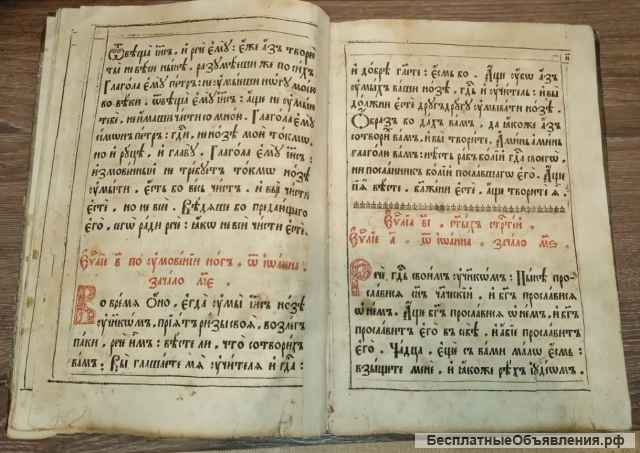 Ѿвѣща іи҃съ, и рече є҆мꙋ : є҆же а҆зъ творю
ты не вѣси нынѣ, разꙋмѣеши же по сихъ
Глагола є҆мꙋ пе́тръ : не ꙋмыеши ногꙋ моею
во вѣки, ѿвѣща є҆мꙋ іи҃съ : а҆ще не ꙋмыю
тебе, не имаши части со мною. Глагола є҆мꙋ
симонъ петръ : гд҃и, не нозѣ мои токмѡ,
но и рꙋцѣ, и главꙋ. Глагола є҆мꙋ іи҃съ :
измовенныи не требꙋетъ токмѡ нозѣ
ꙋмыти. є҆сть бо весь чистъ. и вы чисти
є҆сте, но не вси. Вѣдяше бо предающаго
є҆го, сего ради рече : ꙗко не вси чисти є҆сте.
Є҆ѵⷢ҇лїе в҃ по ꙋмовенїи ногъ. ѿ іѡанна,
зачало м҃е.
Во время ѻ҆но, є҆гда ꙋмы іи҃съ нозѣ
ꙋченикѡмъ, прїятъ ризы своя, возлегъ
паки, рече имъ : вѣсте ли, что сотворихъ
вамъ : Вы глашаете мя ꙋчителя и гд҃а :
и҃
и добрѣ гл҃ете : є҆смь бо. А҆ще ꙋбѡ а҆зъ
ꙋмыхъ ваши нозѣ, гд҃ь и ꙋчитель : и вы
должни є҆сте дрꙋгъ дрꙋгꙋ ꙋмывати нозѣ.
Ѻ҆бразъ бо дахъ вамъ, да ꙗкоже а҆зъ
сотворихъ вамъ, и вы творите. Аминь аминь
глаголю вамъ : нѣсть рабъ болїи гд҃а своегѡ,
ни посланникъ болїи пославшаго є҆го. А҆ще
сїя вѣсте, блажени є҆сте, а҆ще творите я.
Є҆ѵⷢ҇лїа в҃і, ст҃ыхъ страстей
Є҆ѵⷢ҇лїе а҃, ѿ іѡанна, зачало м҃ѕ.
Рече, гд҃ь своимъ ꙋченикѡмъ : Нынѣ про
славися сн҃ъ чл҃ческїй, и бг҃ъ прославися
ѡ немъ. А҆ще бг҃ъ прославися ѡ немъ, и бг҃ъ
прославитъ є҆го в себѣ, и а҆бїе прославитъ
є҆го. Чадца, є҆ще с вами малѡ є҆смь :
взыщете мене, и ꙗкоже рѣхъ іꙋдеѡмъ,
БесплатныеОбъявления.рф